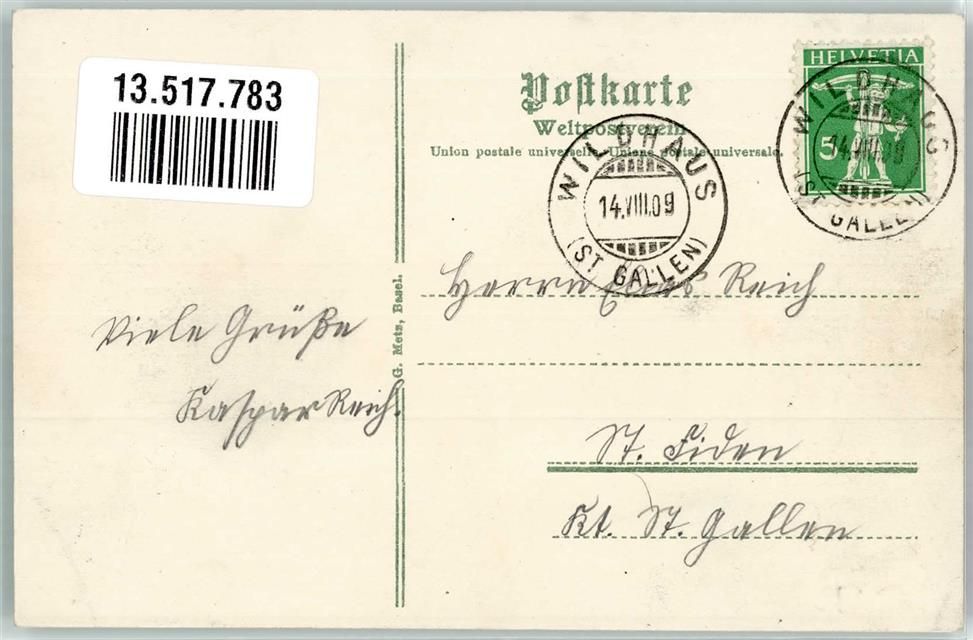 13.517.783
Postkarte
Weltpostverein
Union postale universelle. Unione postale universale.
HELVETIA
5
WILDHAUS
14.VIII.09
(ST. GALLEN)
WILDHAUS
14.VIII.09
(ST. GALLEN)
G. Metz, Basel.
Viele Grüße
Kaspar Reich.
Herrn Reich
St. Fiden
Kt. St. Gallen